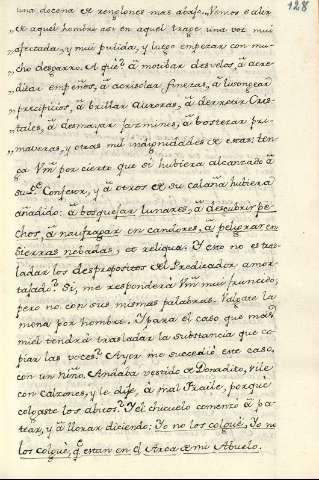 128
una docena de renglones mas abajo. "Vemos salir
"de aquel hombre asi en aquel trage una voz muy
"afectada, y muy pulida, y luego empezar con mu-
"cho desgarro. A què? â motibar desvelos, â acre-
"ditar empeños, â acrisolar finezas, â lisongear
"precipicios, â brillar auroras, â derretir cris-
"tales, â desmayar jazmines, â bostezar pri-
"maveras, y otras mil indignidades de estas: ten-
ga Vm por cierto que si hubiera alcanzado â
su Pe Confesor, y â otros de su calaña hubiera
añadido: â bosquejar lunares, â descubrir pe-
chos, â naufragar en candores, â peligrar en
sierras nebadas, et reliqua. Y esto no es tras-
ladar los despropositos del Predicador amor-
tajado? Si, me responderà Vm muy fruncido,
pero no con sus mismas palabras. Valgate la
mona por hombre. Y para el caso que mas
miel tendrà trasladar la substancia que co-
piar las voces? Ayer me succediò este caso,
con un Niño. Andaba vestido de Donadito, vile
con calzones, y le dije, â mal Fraile, porque
colgaste los abitos? Y el chicuelo comenzò â pa-
tear, y â llorar diciendo: Yo no los colguè, Yo no
los colguè, q estan en el Arca de mi Abuelo.